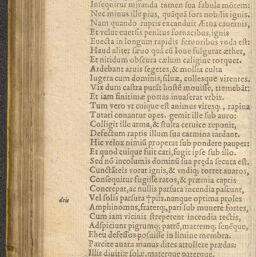 Insequitur miranda tamen sua fabula montem:
Nec minus ille pius, quãquã sors nobilis ignis.
Nam quondo ruptis excanduit Ætna cavernis,
Et velut eversis penitus fornacibus, ignis
Evecta in longum rapidis fervoribus vnda est:
Haud aliter sævo quã cũ Iove fulgurat æther,
Et nitidum obscura cælum caligine torquet.
Ardebant aruis segetes, & mollia culta
Iugera cum dominis, siluæ, collesque virentes.
Vix dum castra putãt hostẽ mouisse, tremebãt:
Et iam finitimæ portas inuaserat vrbis.
Tum vero vt cuique est animus viresq;, rapina
Tutari conantur opes. gemit ille sub auro:
Colligit ille arma, & stulta ceruice reponit,
Defectum raptis illum sua carmina tardant.
Hic velox nimiũ properat sub pondere pauper:
Et quod cuique fuit cari, fugit ipse sub illo.
Sed nõ incolumis dominũ sua præda secuta est.
Cunctãteis vorat ignis, & vndiq; torret auaros,
Consequitur fugisse ratos, & præmia captis
Concrepat, ac nullis parsura incendia pascunt,
Vel solis parsura † piis. nanque optima proles
deis
Amphinomus, fraterq; pari sub munere fortes,
Cum iam vicinis streperent incendia tectis,
Adspiciunt pigrumq; patrẽ, matremq; senẽque,
Eheu defessos posuisse in limine membra.
Parcite auara manus dites attollere prædas:
Illis diuitiæ solæ, materque paterque.